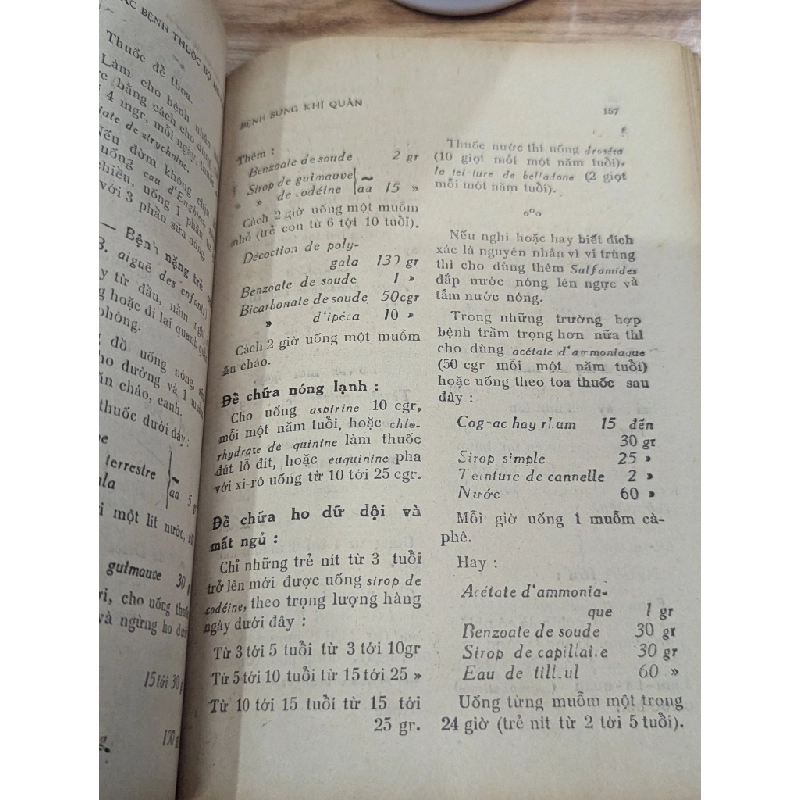 ÁC BỆNH THUỐC BỔ
Thuốc dễ tiêu.
Làm cho bệnh nhân
bằng cách cho
4 mgr. mỗi ngày
tate de strychnine.
Nếu đờm không chịu
uống eau d'Enghien
chiều, uống 1 phần
với 3 phần sữa nóng.
— Bệnh nặng
B. aiguë des enfants
từ đầu, nằm
hoặc đi lại quanh
phòng.
đồ uống nóng
đường và 1
ăn cháo, canh.
thuốc dưới đây:
terrestre
aa 5 gr
một lít nước,
guimauve 30 g
cho uống
và ngừng ho
15 tới 30 g
BỆNH SƯNG KHÍ QUẢN
Thêm :
Benzoate de soude 2 gr
Sirop de guimauve
» de codéine aa 15 »
Cách 2 giờ uống một muỗm
nhỏ (trẻ con từ 6 tới 10 tuổi).
Décoction de poly-
gala 130 gr
Benzoate de soude 1 »
Bicarbonate de soude 50cgr
» d'ipéca 10 »
Cách 2 giờ uống một muỗm
ăn cháo.
Để chữa nóng lạnh :
Cho uống aspirine 10 cgr,
mỗi một năm tuổi, hoặc chlo-
rhydrate de quinine làm thuốc
đút lỗ đít, hoặc euquinine pha
với xi-rô uống từ 10 tới 25 cgr.
Để chữa ho dữ dội và
mất ngủ :
Chỉ những trẻ nít từ 3 tuổi
trở lên mới được uống sirop de
codéine, theo trọng lượng hàng
ngày dưới đây :
Từ 3 tới 5 tuổi từ 3 tới 10gr
Từ 5 tới 10 tuổi từ 15 tới 25 »
Từ 10 tới 15 tuổi từ 15 tới
25 gr.
167
Thuốc nước thì uống droséra
(10 giọt mỗi một năm tuổi).
la teinture de belladone (2 giọt
mỗi một năm tuổi).
Nếu nghi hoặc hay biết đích
xác là nguyên nhân vì vi trùng
thì cho dùng thêm Sulfamides
đắp nước nóng lên ngực và
tắm nước nóng.
Trong những trường hợp
bệnh trầm trọng hơn nữa thì
cho dùng acétate d'ammoniaque
(50 cgr mỗi một năm tuổi)
hoặc uống theo toa thuốc sau
đây :
Cognac hay rhum 15 đến
30 gr
Sirop simple 25 »
Teinture de cannelle 2 »
Nước 60 »
Mỗi giờ uống 1 muỗm cà-
phê.
Hay :
Acétate d'ammonia-
que 1 gr
Benzoate de soude 30 gr
Sirop de capillaire 30 gr
Eau de tilleul 60 »
Uống từng muỗm một trong
24 giờ (trẻ nít từ 2 tới 5 tuổi).